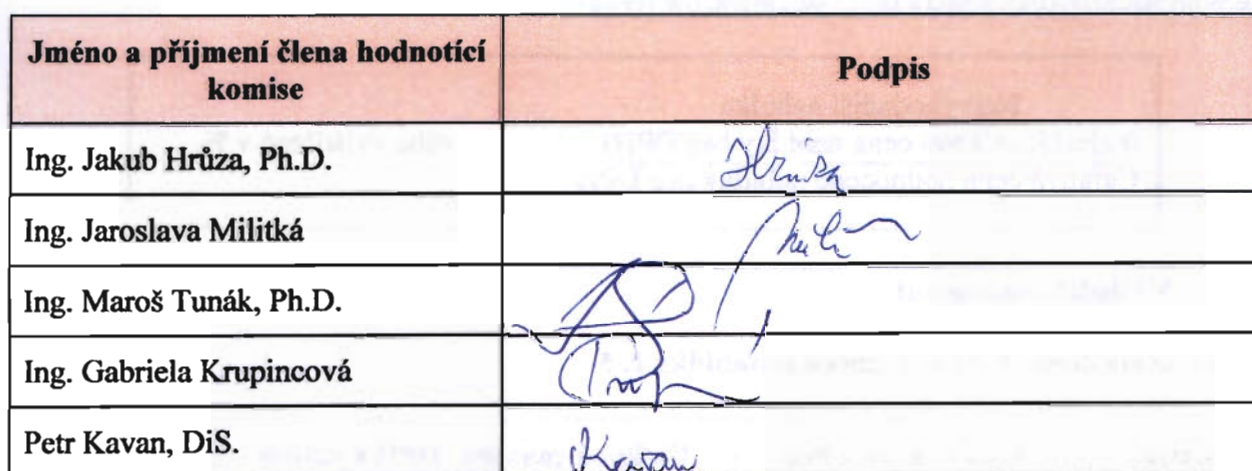 Jméno a příjmení člena hodnotící
komise
Podpis
Ing. Jakub Hrůza, Ph.D.
Ing. Jaroslava Militká
Ing. Maroš Tunák, Ph.D.
Ing. Gabriela Krupincová
Petr Kavan, DiS.
Kavan